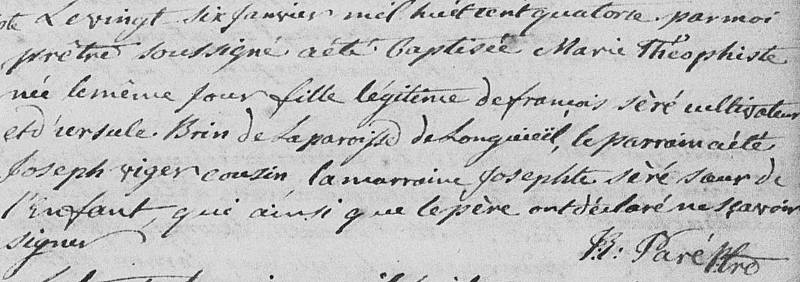 Le vingt six Janvier mil huit cent quatorze par moi
prêtre soussigné a été Baptisée Marie Théophiste
née le même jour fille légitime de françois sèré cultivateur
et d'ursule Brin de La paroisse de Longueüil, le parrain a été
Joseph viger cousin, la marraine Josephte sèré sœur de
l'Enfant, qui ainsi que le père ont déclaré ne sçavoir
signer
R: Paré Ptre